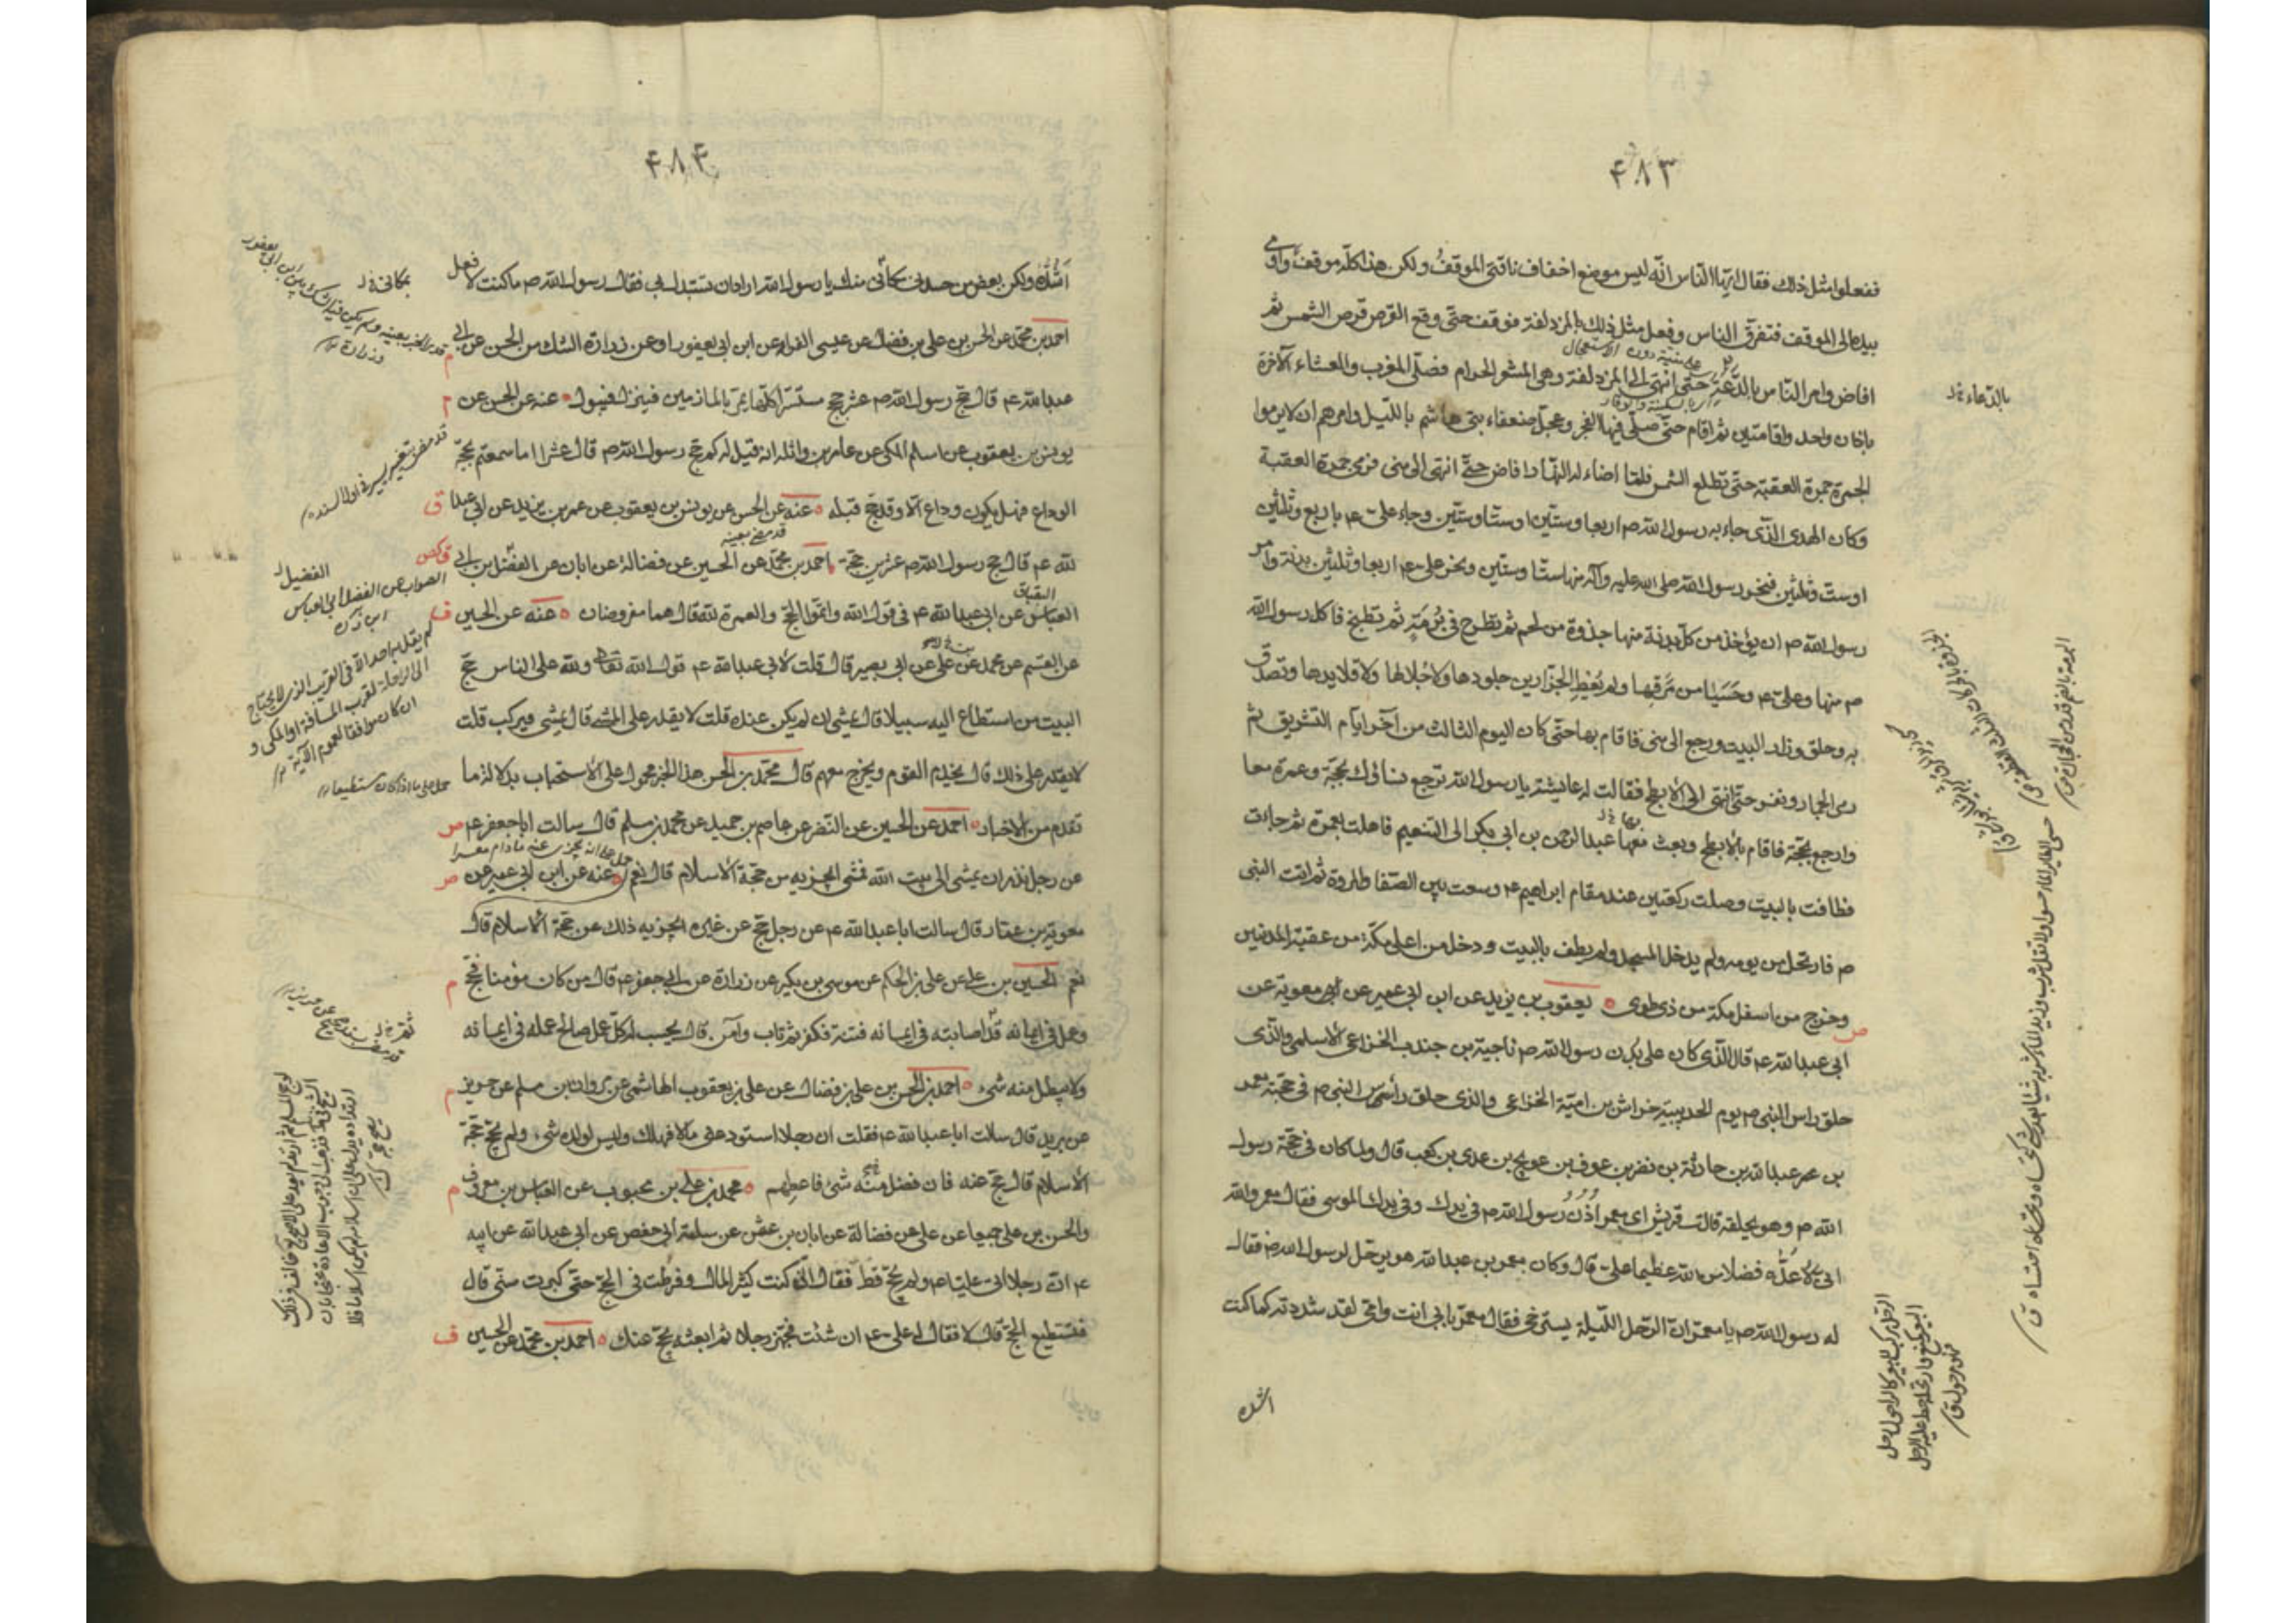 ۴۸۳
ففعلوا مثل ذلك فقال ايها الناس انه ليس موضع اخفاف ناقتى الموقف ولكن هذا كله موقف واومى
بيده الى الموقف فتفرق الناس وفعل مثل ذلك بالمزدلفة فوقف حتى وقع القرص قرص الشمس ثم
افاض وامر الناس بالدعة حتى انتهى الى المزدلفة وهى المشعر الحرام فصلى المغرب والعشاء الآخرة
باذان واحد واقامتين ثم اقام حتى صلى فيها الفجر وعجل ضعفاء بنى هاشم بالليل وامرهم ان لا يرموا
الجمرة جمرة العقبة حتى تطلع الشمس فلما اضاء له النهار افاض حتى انتهى الى منى فرمى جمرة العقبة
وكان الهدى الذى جاء به رسول الله ص اربعا وستين او ستا وستين وجاء على ع باربع وثلثين
او ست وثلثين فنحر رسول الله صلى الله عليه وآله منها ستا وستين ونحر على ع اربعا وثلثين بدنة وامر
رسول الله ص ان يؤخذ من كل بدنة منها جذوة من لحم ثم تطرح فى برمة ثم تطبخ فاكل رسول الله
ص منها وعلى ع وحسيا من مرقها ولم يعط الجزارين جلودها ولا جلالها ولا قلايدها وتصدق
به وحلق وزار البيت ورجع الى منى فاقام بها حتى كان اليوم الثالث من آخر ايام التشريق ثم
رمى الجمار ونفر حتى انتهى الى الابطح فقالت له عايشة يا رسول الله ترجع نساؤك بحجة وعمرة معا
وارجع بحجة فاقام بالابطح وبعث معها عبدالرحمن بن ابى بكر الى التنعيم فاهلت بعمرة ثم جاءت
فطافت بالبيت وصلت ركعتين عند مقام ابراهيم ع وسعت بين الصفا والمروة ثم اتت النبى
ص فارتحل من يومه ولم يدخل المسجد ولم يطف بالبيت ودخل من اعلى مكة من عقبة المدنيين
وخرج من اسفل مكة من ذى طوى ٥ يعقوب بن يزيد عن ابن ابى عمير عن ابى معوية عن
ابى عبدالله ع قال الذى كان على بدن رسول الله ص ناجية بن جندب الخزاعى الاسلمى والذى
حلق راس النبى ص يوم الحديبية خراش بن امية الخزاعى والذى حلق رأس النبى ص فى حجته معمر
بن عبدالله بن حارثة بن نضر بن عوف بن عويج بن عدى بن كعب قال ولما كان فى حجة رسول
الله ص وهو يحلقه قالت قريش اى معمر اذن رسول الله ص فى يدك وفى يدك الموسى فقال معمر والله
انى لاعده فضلا من الله عظيما على قال وكان معمر بن عبدالله هو يرحل لرسول الله ص فقال
له رسول الله ص يا معمر ان الرحل الليلة يسترخى فقال معمر بابى انت وامى لقد شددته كما كنت
اشده
بالدعاء خ ل
۴۸۴
اشده ولكن بعض من حسدنى مكانى منك يا رسول الله اراد ان تستبدل بى فقال رسول الله ص ما كنت لافعل
احمد بن محمد عن الحسن بن على بن فضال عن عيسى الفراء عن ابن ابى يعفور او عن زرارة الشك من الحسن عن ابى
عبدالله ع قال حج رسول الله ص عشر حجج مستترا كلها يمر بالمازمين فينزل فيبول ٥ عنه عن الحسن عن
يونس بن يعقوب عن اسلم المكى عن عامر بن واثله انه قيل له كم حج رسول الله ص قال عشرا اما سمعتم بحجة
الوداع فهل يكون وداع الا وقد حج قبله ٥ عنه عن الحسن عن يونس بن يعقوب عن عمر بن يزيد عن ابى عبدا
لله ع قال حج رسول الله ص عشرين حجة ٥ احمد بن محمد عن الحسين عن فضالة عن ابان عن الفضل بن ابى
العباس عن ابى عبدالله ع فى قول الله واتموا الحج والعمرة لله قال هما مفروضان ٥ عنه عن الحسين
عن القسم عن محمد عن على عن ابى بصير قال قلت لابى عبدالله ع قول الله تعالى ولله على الناس حج
البيت من استطاع اليه سبيلا قال يمشى ان لم يكن عنده قلت لا يقدر على المشى قال يمشى ويركب قلت
لا يقدر على ذلك قال يخدم القوم ويخرج معهم قال محمد بن الحسن هذا الخبر محمول على الاستحباب بدلالة ما
تقدم من الاخبار ٥ احمد عن الحسين عن النضر عن عاصم بن حميد عن محمد بن مسلم قال سالت ابا جعفر ع
عن رجل نذر ان يمشى الى بيت الله فمشى ايجزيه من حجة الاسلام قال نعم ٥ عنه عن ابن ابى عمير عن
معوية بن عمار قال سالت ابا عبدالله ع عن رجل حج عن غيره ايجزيه ذلك عن حجة الاسلام قال
نعم الحسين بن على عن على بن الحكم عن موسى بن بكير عن زرارة عن ابى جعفر ع قال من كان مؤمنا فحج
وعمل فى ايمانه قد اصابته فى ايمانه فتنة فكفر ثم تاب وآمن قال يحسب له كل عمل صالح عمله فى ايمانه
ولا يبطل منه شىء ٥ احمد بن الحسن بن على بن فضال عن على بن يعقوب الهاشمى عن مروان بن مسلم عن حريز
عن بريد قال سالت ابا عبدالله ع فقلت ان رجلا استودعنى مالا فهلك وليس لولده شىء ولم يحج حجة
الاسلام قال حج عنه فان فضل منه شىء فاعطهم ٥ محمد بن على بن محبوب عن العباس بن معروف
والحسن بن على جميعا عن على عن فضالة عن ابان بن عثمن عن سلمة ابى حفص عن ابى عبدالله عن ابيه
ع ان رجلا اتى عليا ع ولم يحج قط فقال انى كنت كثير المال وفرطت فى الحج حتى كبرت سنى قال
فتستطيع الحج قال لا فقال له على ع ان شئت فجهز رجلا ثم ابعثه يحج عنك ٥ احمد بن محمد عن الحسين
الصواب عن الفضل ابى العباس